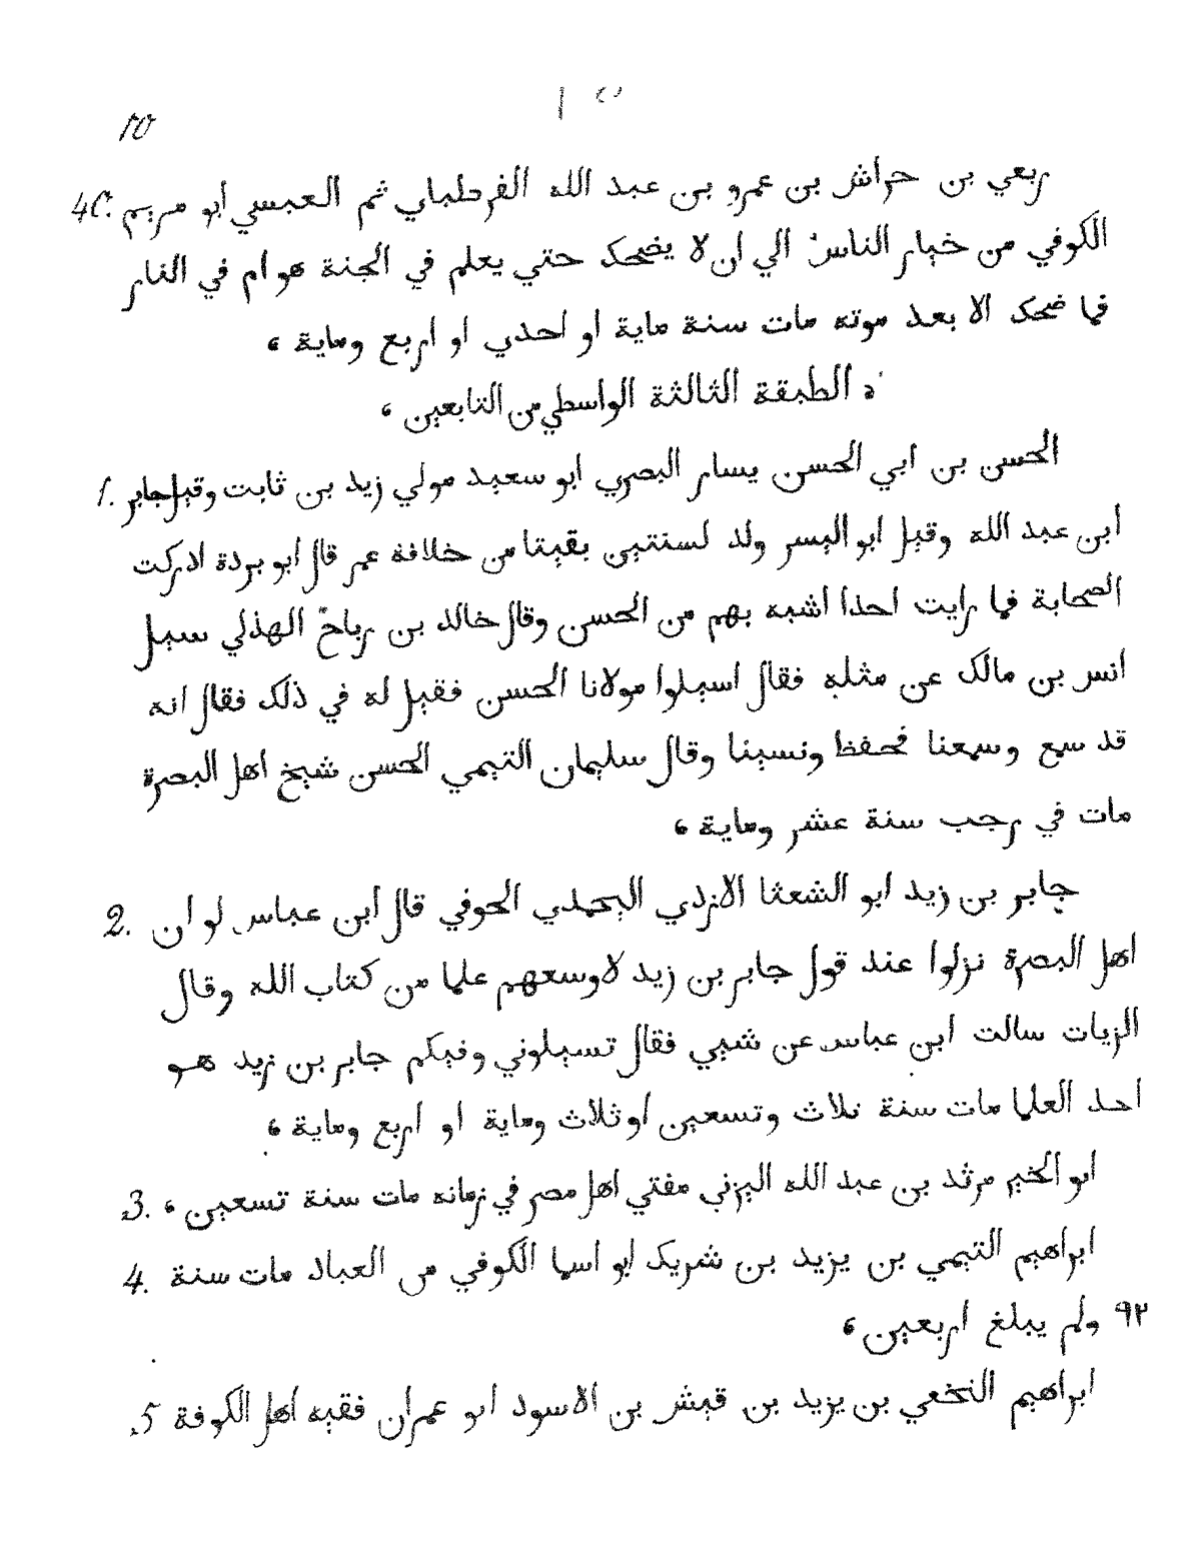 ١٥
ربعي بن حراش بن عمرو بن عبد الله الفرطباي ثم العبسي ابو مريم
الكوفي من خيار الناس الي ان لا يضحك حتي يعلم في الجنة هو ام في النار
فما ضحك الا بعد موته مات سنة ماية او احدي او اربع وماية ،
الطبقة الثالثة الواسطي من التابعين ،
1. الحسن بن ابي الحسن يسار البصري ابو سعيد مولي زيد بن ثابت وقيل جابر
ابن عبد الله وقيل ابو اليسر ولد لسنتين بقيتا من خلافة عمر قال ابو بردة ادركت
الصحابة فما رايت احدا اشبه بهم من الحسن وقال خالد بن رباح الهذلي سيل
انس بن مالك عن مثله فقال اسيلوا مولانا الحسن فقيل له في ذلك فقال انه
قد سمع وسمعنا فحفظ ونسينا وقال سليمان التيمي الحسن شيخ اهل البصرة
مات في رجب سنة عشر وماية ،
2. جابر بن زيد ابو الشعثا الازدي اليحمدي الحوفي قال ابن عباس لو ان
اهل البصرة نزلوا عند قول جابر بن زيد لاوسعهم علما من كتاب الله وقال
الزيات سالت ابن عباس عن شيي فقال تسيلوني وفيكم جابر بن زيد هو
احد العلما مات سنة ثلاث وتسعين او ثلاث وماية او اربع وماية ،
3. ابو الخير مرثد بن عبد الله اليزني مفتي اهل مصر في زمانه مات سنة تسعين ،
4. ابراهيم التيمي بن يزيد بن شريك ابو اسما الكوفي من العباد مات سنة
٩٢ ولم يبلغ اربعين ،
5. ابراهيم النخعي بن يزيد بن قيش بن الاسود ابو عمران فقيه اهل الكوفة